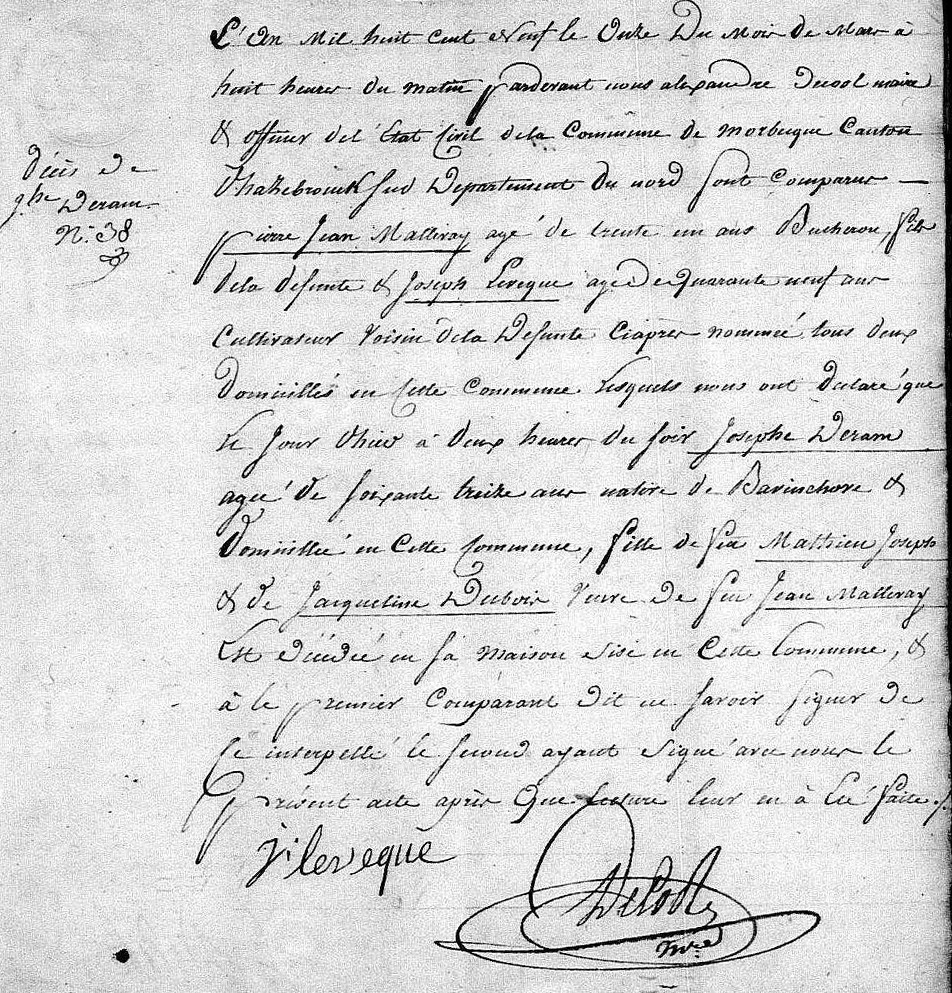 L'An Mil huit cent Neuf le Onze Du Mois De Mars à
huit heures du matin pardevant nous alexandre Decool maire
& officier del'État Civil dela Commune de Morbeque Canton
D'hazebrouck sud Département Du nord sont Comparus —
Décès De
jphe Deram
N.º 38
pierre Jean Matteray agé de trente un ans Bucheron, fils
dela defunte & Joseph Leveque agé De quarante neuf ans
Cultivateur Voisin dela Defunte Ciaprès nommée tous deux
Domiciliés en Cette Commune Lesquels nous ont Declaré que
Le Jour D'hier à Deux heures Du soir Josephe Deram
agée De soixante treize ans native de Bavinchove &
Domiciliée en Cette Commune, fille de feu Mathieu Joseph
& De Jacqueline Dubois Veuve De feu Jean Matteray
Est Décédée en sa maison sise en Cette Commune, &
à le premier Comparant Dit ne savoir signer De
Ce interpellé le second ayant signé avec nous le
présent acte après Que Lecture leur en à Eté faite ./.
j: leveque
DeCool
m.re